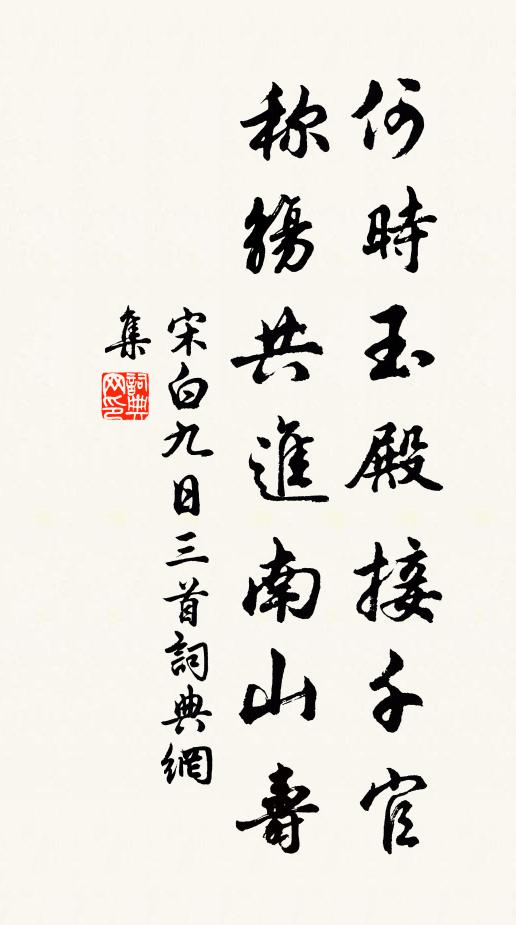 何時玉殿接千官
称觴共進南山壽
宋白九日三首詞典網
集
詞典
网印